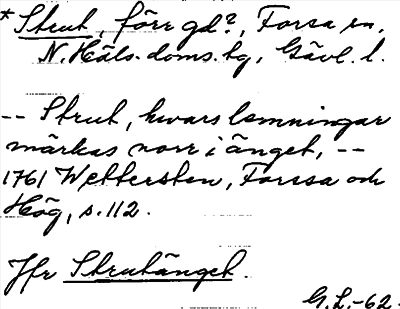 * Strut, förr gd?, Forsa sn,
N. Häls. doms. bg, Gävl. l.
-- Strut, hwars lemningar
märkas norr i änget, --
1761 Wettersten, Forssa och
Hög, s. 112.
Jfr Strutänget.
G.L.-62.